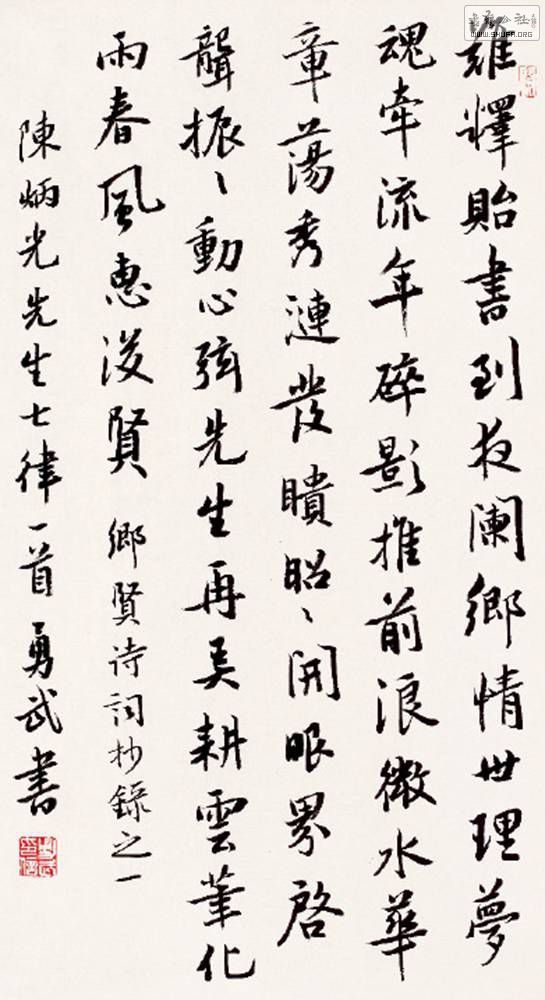 雒釋貽書到夜闌鄉情世理夢
魂牽流年碎影推前浪微水華
章蕩秀漣發聵昭〻開眼界啓
聾振〻動心弦先生再吴耕雲筆化
雨春風惠後賢
鄉賢诗詞抄錄之一
陳炳光先生七律一首勇武書
書法公社
WWW.SHUFA.ORG